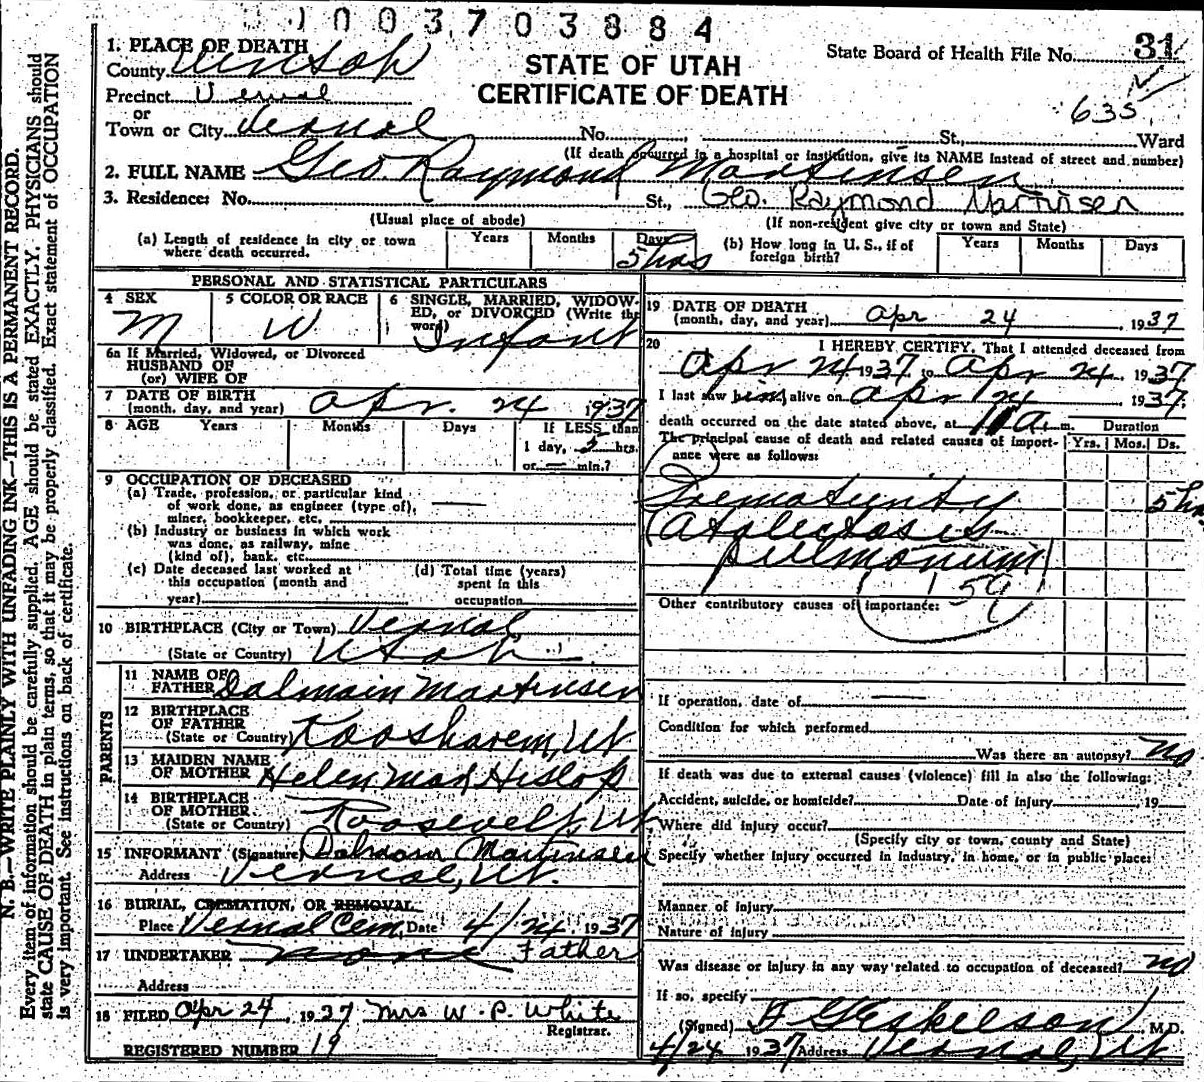 1003703884
1. PLACE OF DEATH
County Uintah
Precinct Vernal
or
Town or City Vernal No. St., Ward
STATE OF UTAH
CERTIFICATE OF DEATH
State Board of Health File No. 31
635
(If death occurred in a hospital or institution, give its NAME instead of street and number)
2. FULL NAME Geo. Raymond Martinsen
3. Residence: No. St., Geo. Raymond Martinsen
(Usual place of abode) (If non-resident give city or town and State)
(a) Length of residence in city or town where death occurred. Years Months Days 5 hrs
(b) How long in U. S., if of foreign birth? Years Months Days
PERSONAL AND STATISTICAL PARTICULARS
4 SEX M
5 COLOR OR RACE W
6 SINGLE, MARRIED, WIDOWED, or DIVORCED (Write the word) Infant
6a If Married, Widowed, or Divorced
HUSBAND OF
(or) WIFE OF
7 DATE OF BIRTH
(month, day, and year) Apr. 24 1937
8 AGE Years Months Days If LESS than
1 day, 5 hrs.
or — min.?
9 OCCUPATION OF DECEASED
(a) Trade, profession, or particular kind
of work done, as engineer (type of),
miner, bookkeeper, etc.
(b) Industry or business in which work
was done, as railway, mine
(kind of), bank, etc.
(c) Date deceased last worked at
this occupation (month and
year)
(d) Total time (years)
spent in this
occupation
10 BIRTHPLACE (City or Town) Vernal,
(State or Country) Utah
PARENTS
11 NAME OF
FATHER Dalmain Martinsen
12 BIRTHPLACE
OF FATHER
(State or Country) Koosharem, Ut.
13 MAIDEN NAME
OF MOTHER Helen Mae Hislop
14 BIRTHPLACE
OF MOTHER
(State or Country) Roosevelt, Ut
15 INFORMANT (Signature) Martinsen
Address Vernal, Ut.
16 BURIAL, CREMATION, OR REMOVAL
Place Vernal Cem. Date 4/24 1937
17 UNDERTAKER none Father
Address
18 FILED Apr 24, 1937 Mrs W. P. White
Registrar.
REGISTERED NUMBER 19
19 DATE OF DEATH
(month, day, and year) Apr 24, 1937
20 I HEREBY CERTIFY, That I attended deceased from
Apr 24 1937 to Apr 24, 1937
I last saw him alive on Apr 24 1937.
death occurred on the date stated above, at 11 a. m. Duration
The principal cause of death and related causes of importance were as follows: Yrs. Mos. Ds.
Prematurity 5 hrs
(Atelectasis
pulmonum)
159
Other contributory causes of importance:
If operation, date of —
Condition for which performed
Was there an autopsy? no
If death was due to external causes (violence) fill in also the following:
Accident, suicide, or homicide? Date of injury , 19
Where did injury occur?
(Specify city or town, county and State)
Specify whether injury occurred in industry, in home, or in public place:
Manner of injury
Nature of injury
Was disease or injury in any way related to occupation of deceased? no
If so, specify
(Signed) F G Eskelson M.D.
4/24 1937 Address Vernal, Ut
N. B.—WRITE PLAINLY WITH UNFADING INK—THIS IS A PERMANENT RECORD.
Every item of information should be carefully supplied. AGE should be stated EXACTLY. PHYSICIANS should
state CAUSE OF DEATH in plain terms, so that it may be properly classified. Exact statement of OCCUPATION
is very important. See instructions on back of certificate.